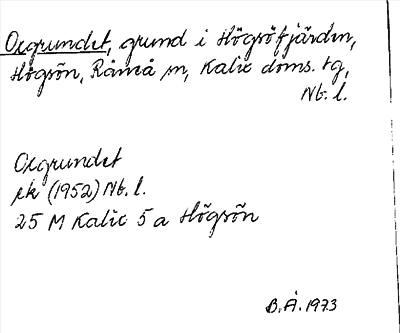 Oxgrundet, grund i Högsöfjärden,
Högsön, Råneå sn, Kalix doms. tg,
Nb. l.
Oxgrundet
ek (1952) Nb. l.
25 M Kalix 5 a Högsön
B.Å. 1973